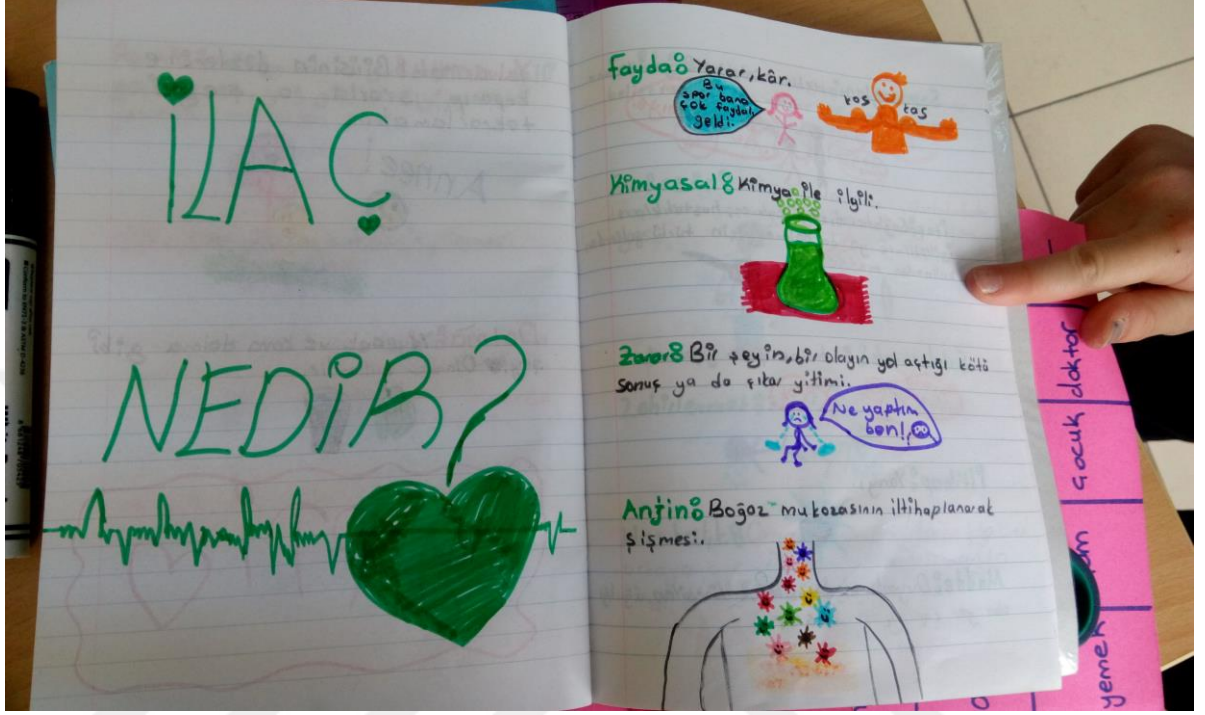 İLAÇ
NEDİR?
Fayda: Yarar, kâr.
Bu
spor bana
çok faydalı
geldi.
kas
kas
Kimyasal: Kimya ile ilgili.
Zarar: Bir şeyin, bir olayın yol açtığı kötü
sonuç ya da çıkar yitimi.
Ne yaptım
ben!
Anjin: Boğaz mukozasının iltihaplanarak
şişmesi.
doktor
çocuk
yemek